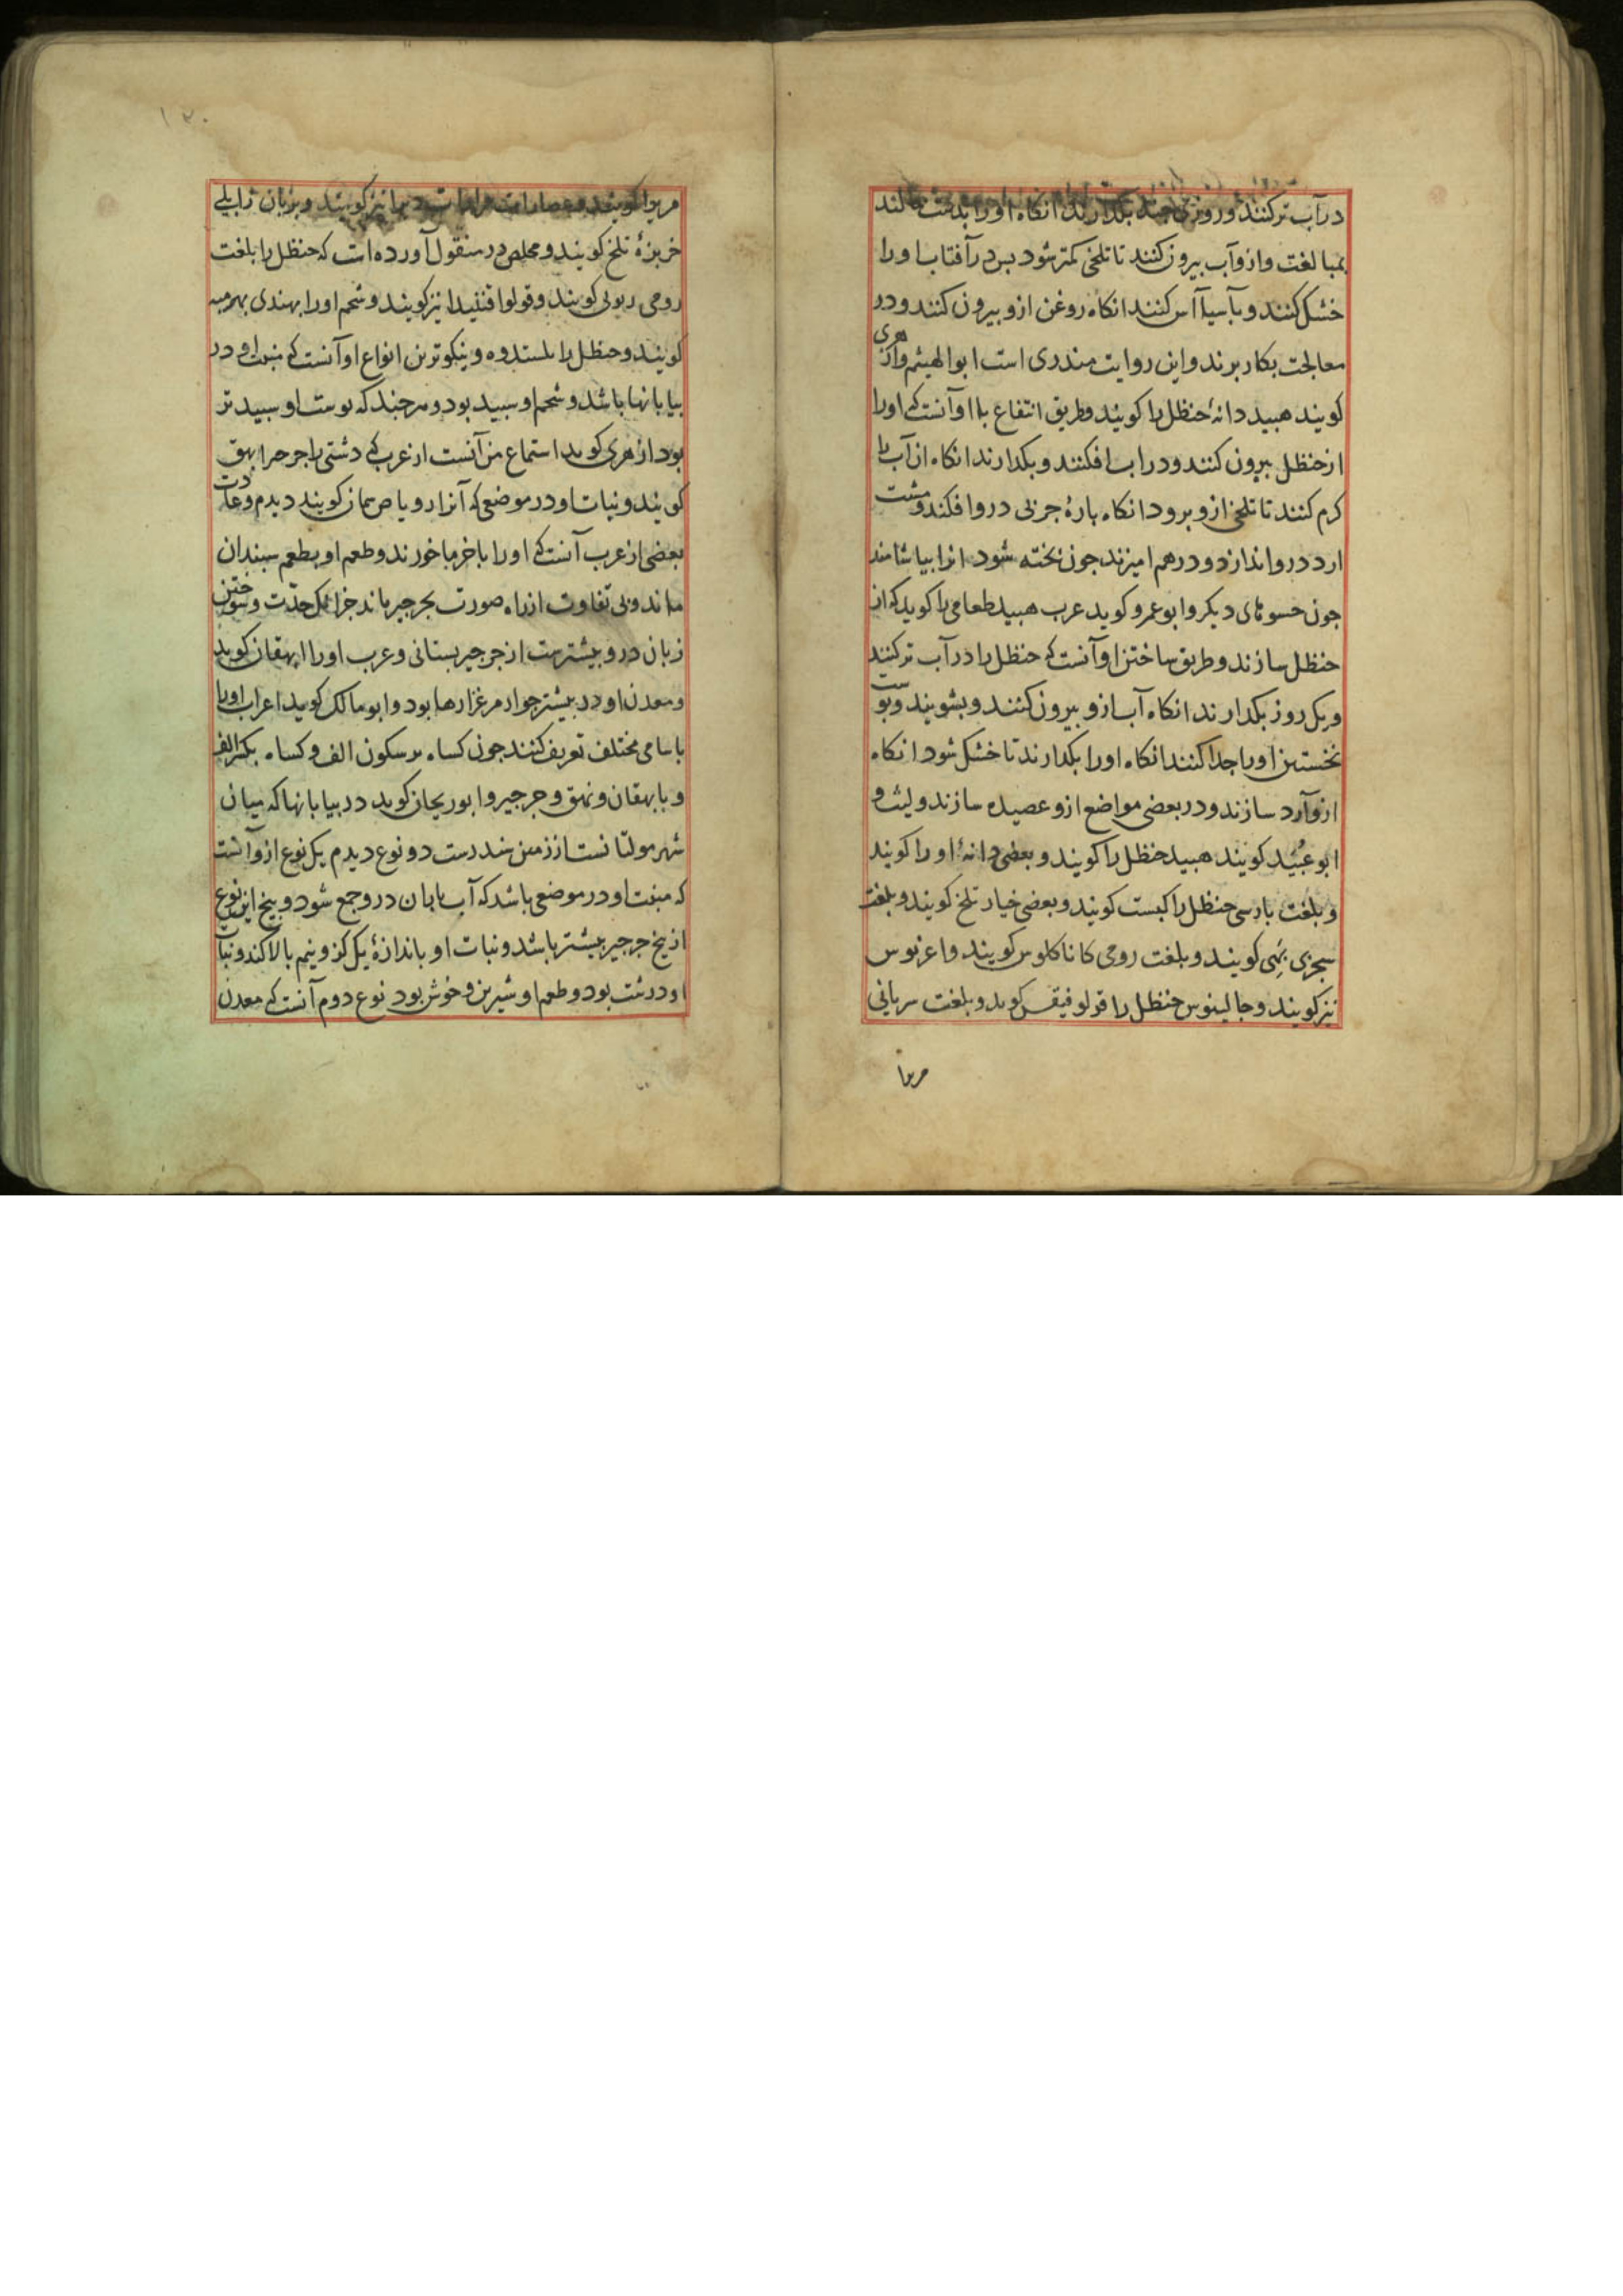 در آب تر کنند و روزی چند بکدارند انکاه اورا بدست مالند
بمبالغت و ازو آب بیرون کنند تا تلخی کمتر شود بس در آفتاب اورا
خشک کنند و بآسیا آس کنند انکاه روغن ازو بیرون کنند و در
معالجت بکار برند و این روایت مندری است ابو الهیثم و از هری
کویند هبید دانهٔ حنظل را کویند و طریق انتفاع با او آنست که اورا
از حنظل بیرون کنند و در اب افکنند و بکدارند انکاه ان آب را
کرم کنند تا تلخی ازو برود انکاه بارهٔ جربی درو افکند و مشت
ارد درو اندازد و در هم امیزند جون بخته شود انرا بیاشامند
جون حسوهای دیکر و ابو عمرو کوید عرب هبید طعامی را کوید که از
حنظل سازند و طریق ساختن او آنست که حنظل را در آب تر کنند
و یک روز بکدارند انکاه آب ازو بیرون کنند و بشویند و بوست
نخستین اورا جدا کنند انکاه اورا بکدارند تا خشک شود انکاه
ازو آرد سازند و در بعضی مواضع ازو عصیده سازند و لیث و
ابو عُبَید کویند هبید حنظل را کویند و بعضی دانهٔ اورا کویند
و بلغت بارسی حنظل را کبست کویند و بعضی خیار تلخ کویند و بلغت
سجزی کویند و بلغت رومی کاناکلوس کویند و اغرنوس
نیز کویند و جالینوس حنظل را قولوفیقس کوید و بلغت سریانی
مریرا
۱۲۰
مریرا کویند و نیز کویند و بزبان زابلی
خربزهٔ تلخ کویند و مخلص در منقول آورده است که حنظل را بلغت
رومی کویند و قولوا نیز کویند و شحم اورا بهندی
کویند و حنظل را و نیکوترین انواع او آنست که منبت او در
بیابانها باشد و شحم او سبید بود و هر جند که بوست او سبید تر
بود ازهری کوید استماع من آنست از عرب که دشتی را
کویند و نبات او در موضعی که آنرا کویند دیدم و عادت
بعضی از عرب آنست که اورا با خرما خورند و طعم او بطعم سبندان
ماند و بی تفاوت از راه صورت بجرجیر ماند جز انک حدّت و سوختن
زبان درو بیشترست از جرجیر بستانی و عرب اورا ایهقان کوید
و معدن او در بیشتر جوار مرغزارها بود و ابو مالک کوید اعراب اورا
باسامی مختلف تعریف کنند جون کساه بر سکون الف و کساه بکسر الف
و بایهقان و نهق و جرجیر و ابو ریحان کوید در بیابانها که میان
شهر مولتانست از زمین سند رست دو نوع دیدم یک نوع ازو آنست
که منبت او در موضعی باشد که آب باران درو جمع شود و بیخ این نوع
از بیخ جرجیر بیشتر باشد و نبات او باندازهٔ یک کز و نیم بالا کند و نبات
او درشت بود و طعم او شیرین و خوش بود نوع دوم آنست که معدن